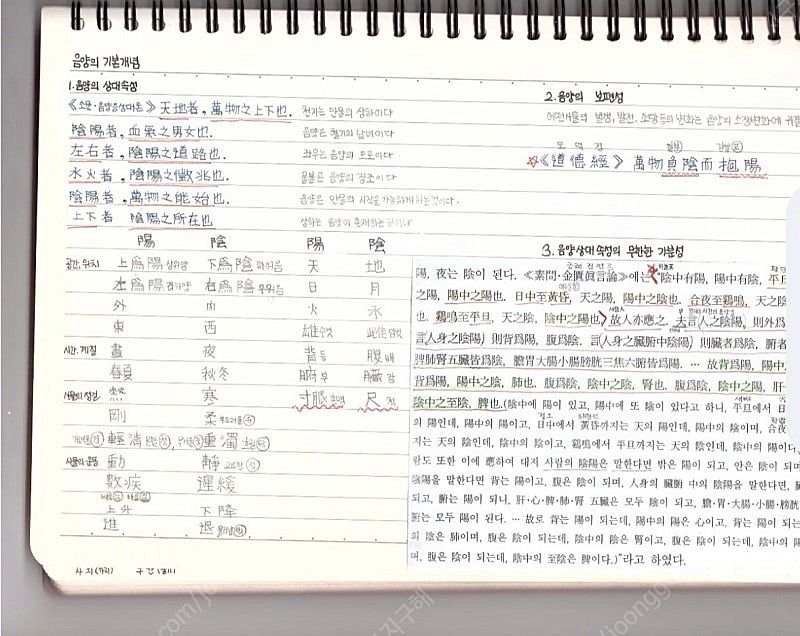 음양의 기본개념
1. 음양의 상대속성
《소문·음양응상대론》 天地者, 萬物之上下也. 천지는 만물의 상하이다
陰陽者, 血氣之男女也. 음양은 혈기의 남녀이다
左右者, 陰陽之道路也. 좌우는 음양의 도로이다
水火者, 陰陽之徵兆也. 물불은 음양의 징조이다
陰陽者, 萬物之能始也. 음양은 만물의 시작을 가능하게하는것이다.
上下者 陰陽之所在也 상하는 음양이 존재하는 곳이다
陽 陰 陽 陰
공간, 위치 上爲陽 상위양 下爲陰 하위음 天 地
左爲陽 좌위양 右爲陰 우위음 日 月
外 內 火 水
東 西 雄 雌
시간, 계절 晝 夜 背 등 腹 배
春夏 秋冬 腑 부 臟 장
사물의 성질 熱 寒 寸脈 尺
剛 柔
輕淸 重濁
사물의 운동 動 靜
數疾 遲緩
上升 下降
進 退
2. 음양의 보편성
어떤사물의 발생, 발전, 소멸등의 변화는 음양의 소장변화에 귀결
도 덕 경
☆《道德經》 萬物負陰而抱陽
3. 음양상대속성의 무한한 가분성
陽, 夜는 陰이 된다. 《素問·金匱眞言論》에는 “陰中有陽, 陽中有陰, 平旦
之陽, 陽中之陽也. 日中至黃昏, 天之陽, 陽中之陰也. 合夜至鷄鳴, 天之陰
也. 鷄鳴至平旦, 天之陰, 陰中之陽也 故人亦應之. 夫言人之陰陽, 則外爲
言人身之陰陽) 則背爲陽, 腹爲陰. 言(人身之臟腑中陰陽) 則臟者爲陰, 腑者
脾肺腎五臟皆爲陰, 膽胃大腸小腸膀胱三焦六腑皆爲陽. … 故背爲陽, 陽中
背爲陽, 陽中之陰, 肺也. 腹爲陰, 陰中之陰, 腎也. 腹爲陰, 陰中之陽, 肝
陰中之至陰, 脾也.(陰中에 陽이 있고, 陽中에 또 陰이 있다고 하니, 平旦에서 日
의 陽인데, 陽中의 陽이고, 日中에서 黃昏까지는 天의 陽인데, 陽中의 陰이며, 合夜
지는 天의 陰인데, 陰中의 陰이고, 鷄鳴에서 平旦까지는 天의 陰인데, 陰中의 陽이다
람도 또한 이에 應하여 대지 사람의 陰陽은 말한다면 밖은 陽이 되고, 안은 陰이 되며
陰陽을 말한다면 背는 陽이고, 腹은 陰이 되며, 人身의 臟腑 中의 陰陽을 말한다면,
되고, 腑는 陽이 되니, 肝·心·脾·肺·腎 五臟은 모두 陰이 되고, 膽·胃·大腸·小腸·膀胱
腑는 모두 陽이 된다. … 故로 背는 陽이 되는데, 陽中의 陽은 心이고, 背는 陽이 되는
의 陰은 肺이며, 腹은 陰이 되는데, 陰中의 陰은 腎이고, 腹은 陰이 되는데, 陰中의 陽
며, 腹은 陰이 되는데, 陰中의 至陰은 脾이다.)”라고 하였다.